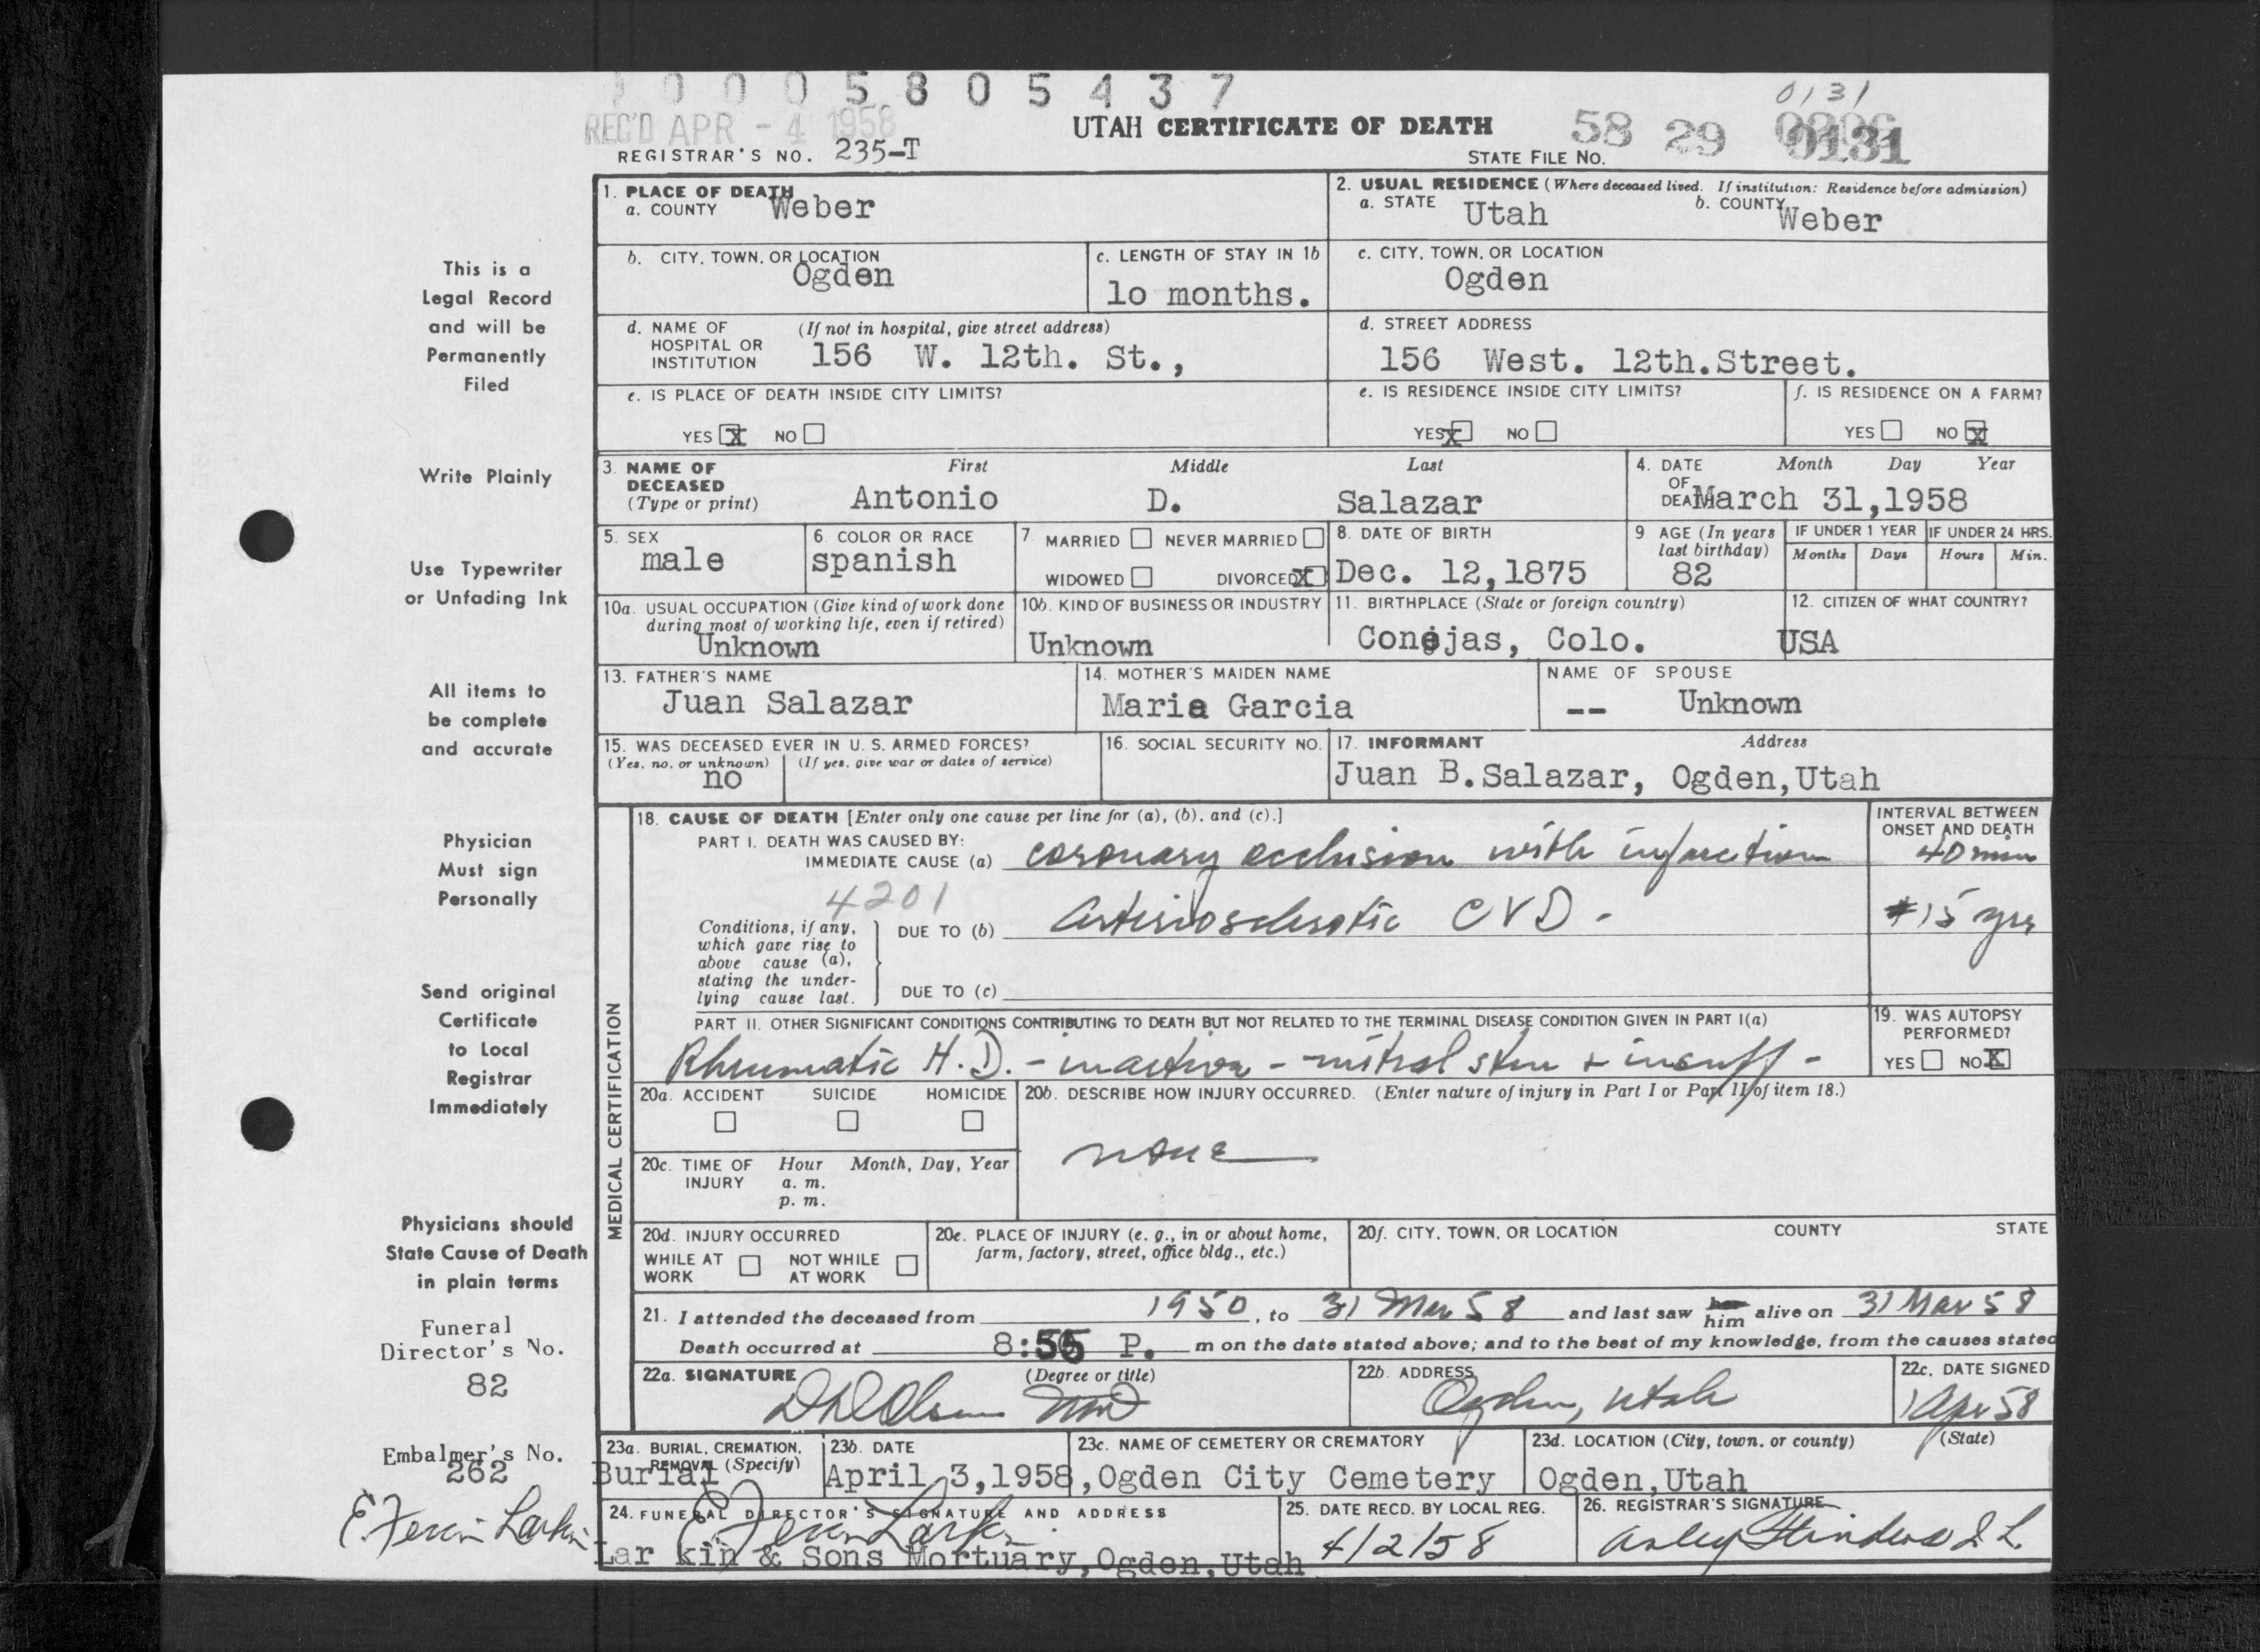 0 0 0 5 8 0 5 4 3 7
REC'D APR - 4 1958
0131
UTAH CERTIFICATE OF DEATH
58 29 0131
REGISTRAR'S NO. 235-T
STATE FILE NO.
1. PLACE OF DEATH
a. COUNTY Weber
2. USUAL RESIDENCE (Where deceased lived. If institution: Residence before admission)
a. STATE Utah b. COUNTY Weber
b. CITY, TOWN, OR LOCATION Ogden
c. LENGTH OF STAY IN 1b lo months.
c. CITY, TOWN, OR LOCATION Ogden
d. NAME OF HOSPITAL OR INSTITUTION (If not in hospital, give street address)
156 W. 12th. St.,
d. STREET ADDRESS
156 West. 12th.Street.
e. IS PLACE OF DEATH INSIDE CITY LIMITS?
YES X NO
e. IS RESIDENCE INSIDE CITY LIMITS?
YES X NO
f. IS RESIDENCE ON A FARM?
YES NO X
3. NAME OF DECEASED (Type or print)
First Middle Last
Antonio D. Salazar
4. DATE OF DEATH Month Day Year
March 31,1958
5. SEX
male
6. COLOR OR RACE
spanish
7. MARRIED NEVER MARRIED
WIDOWED DIVORCED X
8. DATE OF BIRTH
Dec. 12,1875
9 AGE (In years last birthday)
82
IF UNDER 1 YEAR
Months Days
IF UNDER 24 HRS.
Hours Min.
10a. USUAL OCCUPATION (Give kind of work done during most of working life, even if retired)
Unknown
10b. KIND OF BUSINESS OR INDUSTRY
Unknown
11. BIRTHPLACE (State or foreign country)
Conejas, Colo.
12. CITIZEN OF WHAT COUNTRY?
USA
13. FATHER'S NAME
Juan Salazar
14. MOTHER'S MAIDEN NAME
Maria Garcia
NAME OF SPOUSE
-- Unknown
15. WAS DECEASED EVER IN U. S. ARMED FORCES?
(Yes, no, or unknown) (If yes, give war or dates of service)
no
16. SOCIAL SECURITY NO.
17. INFORMANT Address
Juan B.Salazar, Ogden,Utah
MEDICAL CERTIFICATION
18. CAUSE OF DEATH [Enter only one cause per line for (a), (b), and (c).]
INTERVAL BETWEEN ONSET AND DEATH
PART I. DEATH WAS CAUSED BY:
IMMEDIATE CAUSE (a) coronary occlusion with infarction 40 min
4201
Conditions, if any, which gave rise to above cause (a), stating the underlying cause last.
DUE TO (b) Arteriosclerotic CVD - 15 yrs
DUE TO (c)
PART II. OTHER SIGNIFICANT CONDITIONS CONTRIBUTING TO DEATH BUT NOT RELATED TO THE TERMINAL DISEASE CONDITION GIVEN IN PART I(a)
Rheumatic H.D. - inactive - mitral sten + insuff -
19. WAS AUTOPSY PERFORMED?
YES NO X
20a. ACCIDENT SUICIDE HOMICIDE
20b. DESCRIBE HOW INJURY OCCURRED. (Enter nature of injury in Part I or Part II of item 18.)
none
20c. TIME OF INJURY Hour Month, Day, Year
a. m.
p. m.
20d. INJURY OCCURRED
WHILE AT WORK NOT WHILE AT WORK
20e. PLACE OF INJURY (e. g., in or about home, farm, factory, street, office bldg., etc.)
20f. CITY, TOWN, OR LOCATION COUNTY STATE
21. I attended the deceased from 1950, to 31 Mar 58 and last saw her him alive on 31 Mar 58
Death occurred at 8:55 P. m on the date stated above; and to the best of my knowledge, from the causes stated
22a. SIGNATURE (Degree or title)
Olsen MD
22b. ADDRESS
Ogden, Utah
22c. DATE SIGNED
1 Apr 58
23a. BURIAL, CREMATION, REMOVAL (Specify)
Burial
23b. DATE
April 3,1958,
23c. NAME OF CEMETERY OR CREMATORY
Ogden City Cemetery
23d. LOCATION (City, town, or county) (State)
Ogden,Utah
24. FUNERAL DIRECTOR'S SIGNATURE AND ADDRESS
E. Larkin
Lar kin & Sons Mortuary,Ogden,Utah
25. DATE RECD. BY LOCAL REG.
4/2/58
26. REGISTRAR'S SIGNATURE
This is a
Legal Record
and will be
Permanently
Filed
Write Plainly
Use Typewriter
or Unfading Ink
All items to
be complete
and accurate
Physician
Must sign
Personally
Send original
Certificate
to Local
Registrar
Immediately
Physicians should
State Cause of Death
in plain terms
Funeral
Director's No.
82
Embalmer's No.
262
E. Larkin